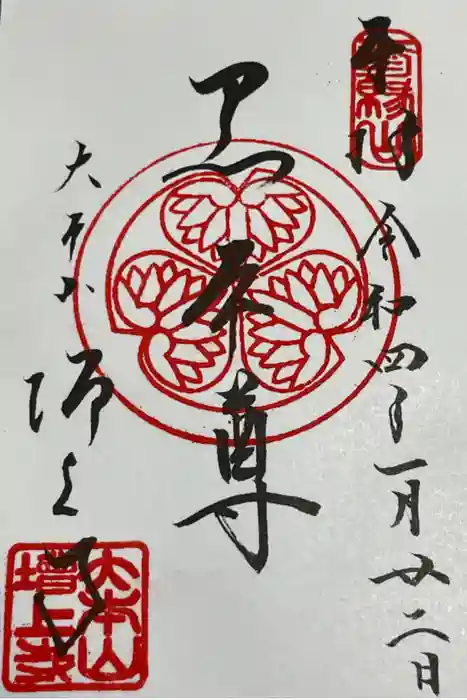 奉拝
三縁山
令和四年一月廿二日
黒本尊
大本山
増上寺
大本山
増上寺